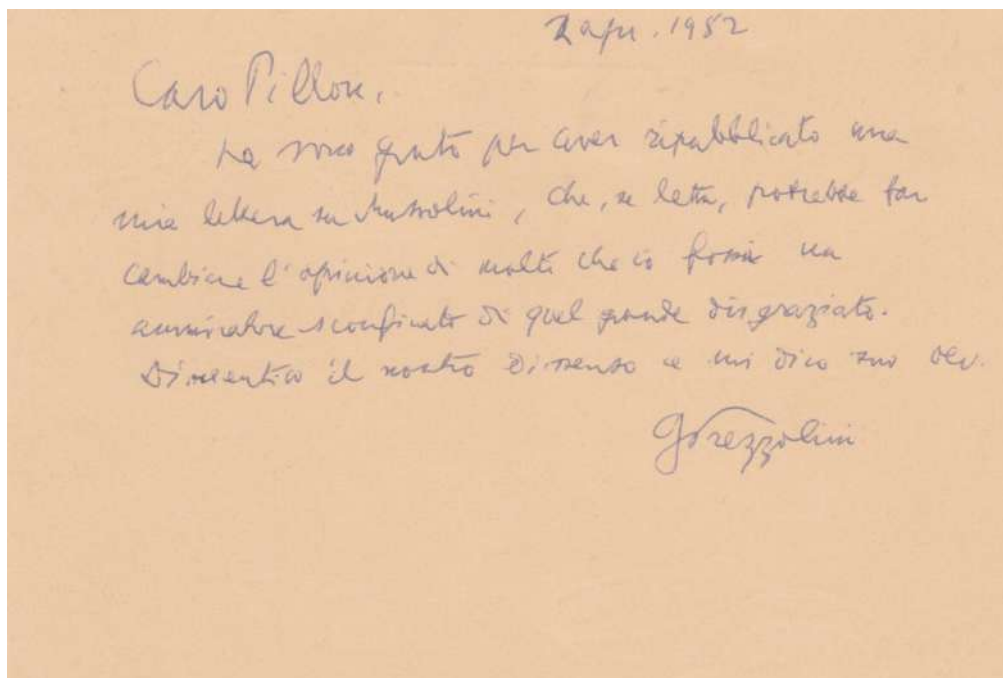 2 apr. 1952
Caro Pillon,
Le sono grato per aver ripubblicato una
mia lettera su Mussolini, che, se letta, potrebbe far
cambiare l'opinione di molti che io fossi un
ammiratore sconfinato di quel grande disgraziato.
Dimentico il nostro dissenso e mi dico suo dev.
GPrezzolini